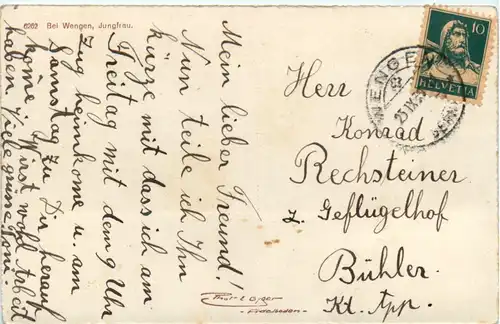 6262 Bei Wengen, Jungfrau.
Mein lieber Freund!
Nun teile ich Ihn
kürze mit dass ich am
Freitag mit dem 9 Uhr
Zug heimkome u. am
Samstag zu Dir herauf
kome, wirst wohl Arbeit
haben. Viele grüsse Toni.
10
HELVETIA
WENGEN
BERN
Herr
Konrad
Rechsteiner
z. Geflügelhof
Bühler
Kt. App.